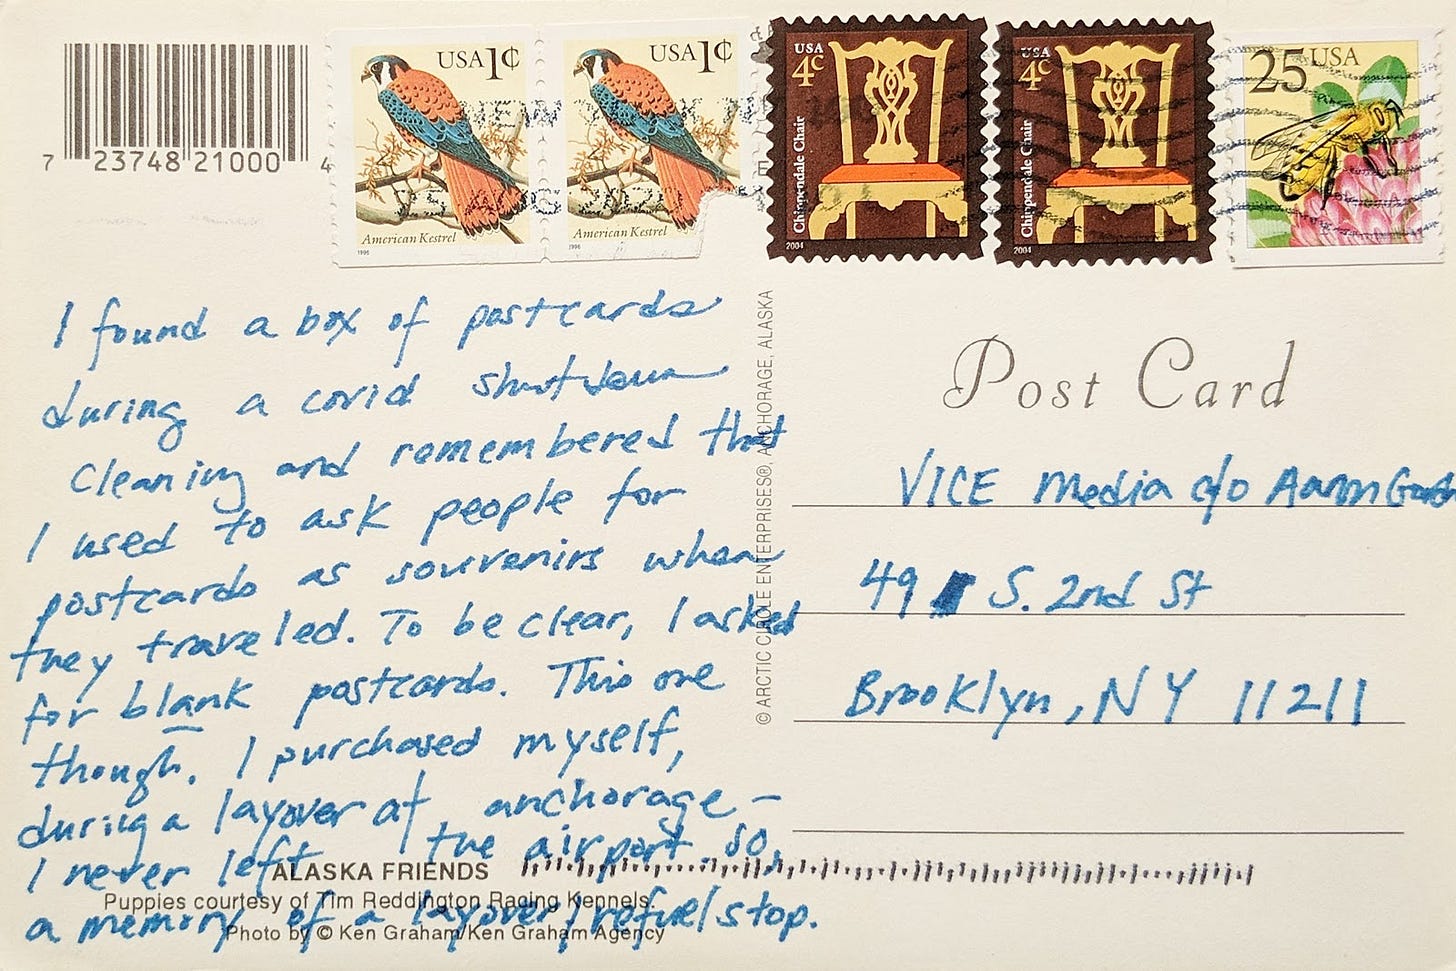 7 23748 21000 4
USA 1¢
American Kestrel
1996
USA 1¢
American Kestrel
1996
USA
4c
Chippendale Chair
2004
USA
4c
Chippendale Chair
2004
25 USA
NEW
I found a box of postcards
during a covid shutdown
cleaning and remembered that
I used to ask people for
postcards as souvenirs when
they traveled. To be clear, I asked
for blank postcards. This one
though, I purchased myself,
during a layover at anchorage –
I never left the airport. So,
a memory of a layover/refuel stop.
ALASKA FRIENDS
Puppies courtesy of Tim Reddington Racing Kennels.
Photo by © Ken Graham/Ken Graham Agency
© ARCTIC CIRCLE ENTERPRISES®, ANCHORAGE, ALASKA
Post Card
VICE Media c/o Aaron
49 S. 2nd St
Brooklyn, NY 11211